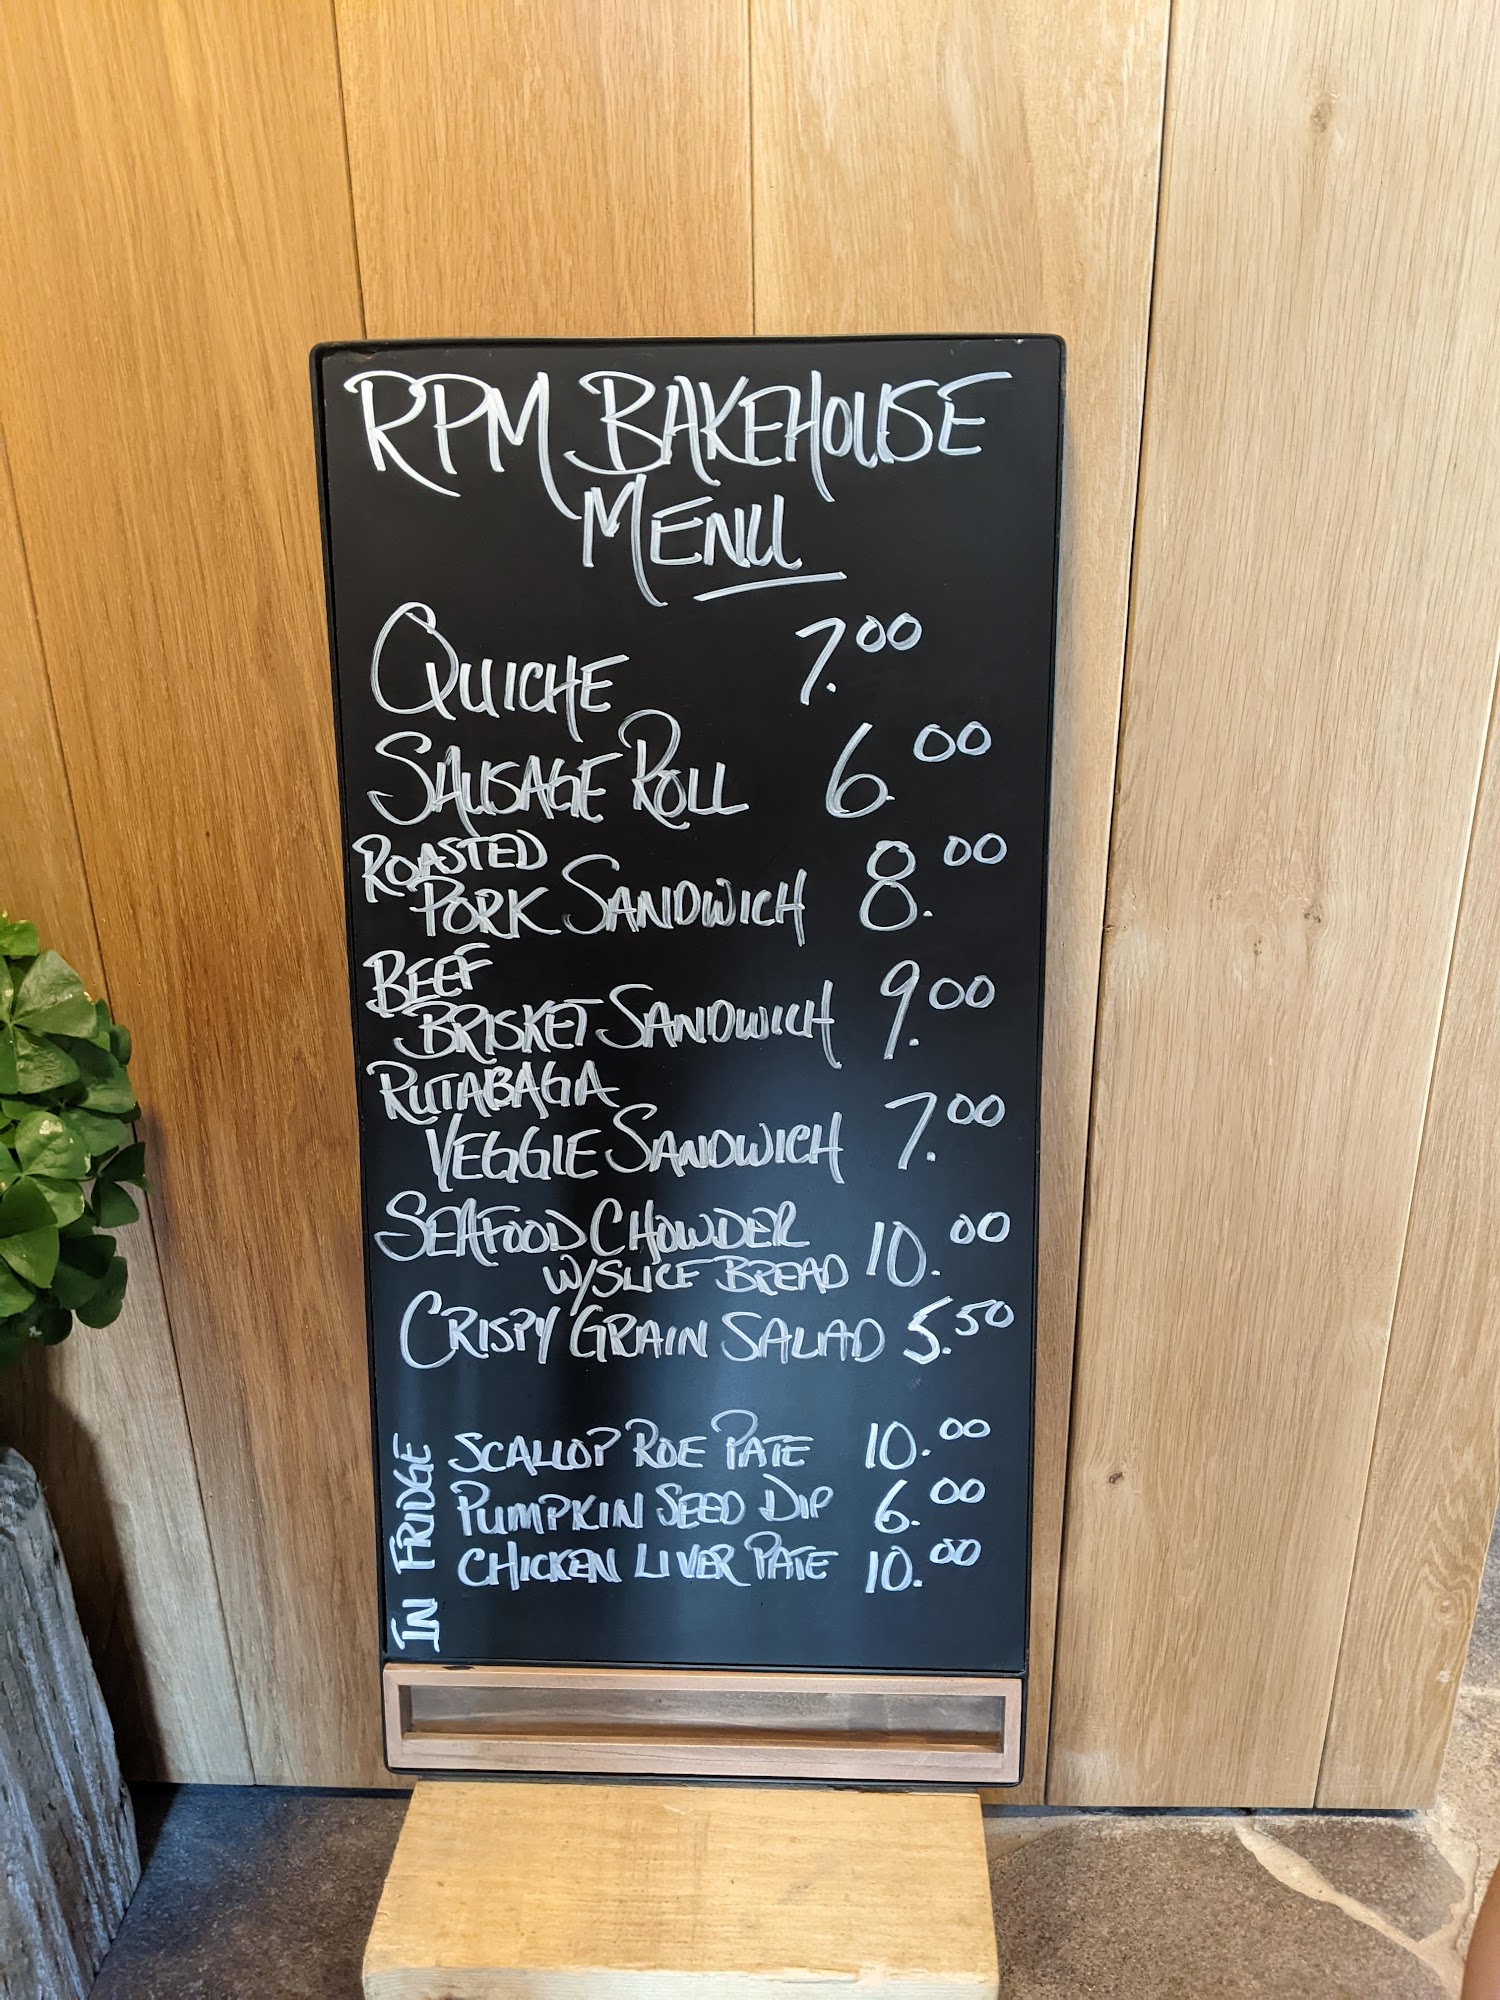 RPM BAKEHOUSE
MENU
QUICHE 7.00
SAUSAGE ROLL 6.00
ROASTED
PORK SANDWICH 8.00
BEEF
BRISKET SANDWICH 9.00
RUTABAGA
VEGGIE SANDWICH 7.00
SEAFOOD CHOWDER 10.00
W/SLICE BREAD
CRISPY GRAIN SALAD 5.50
IN FRIDGE
SCALLOP ROE PATE 10.00
PUMPKIN SEED DIP 6.00
CHICKEN LIVER PATE 10.00